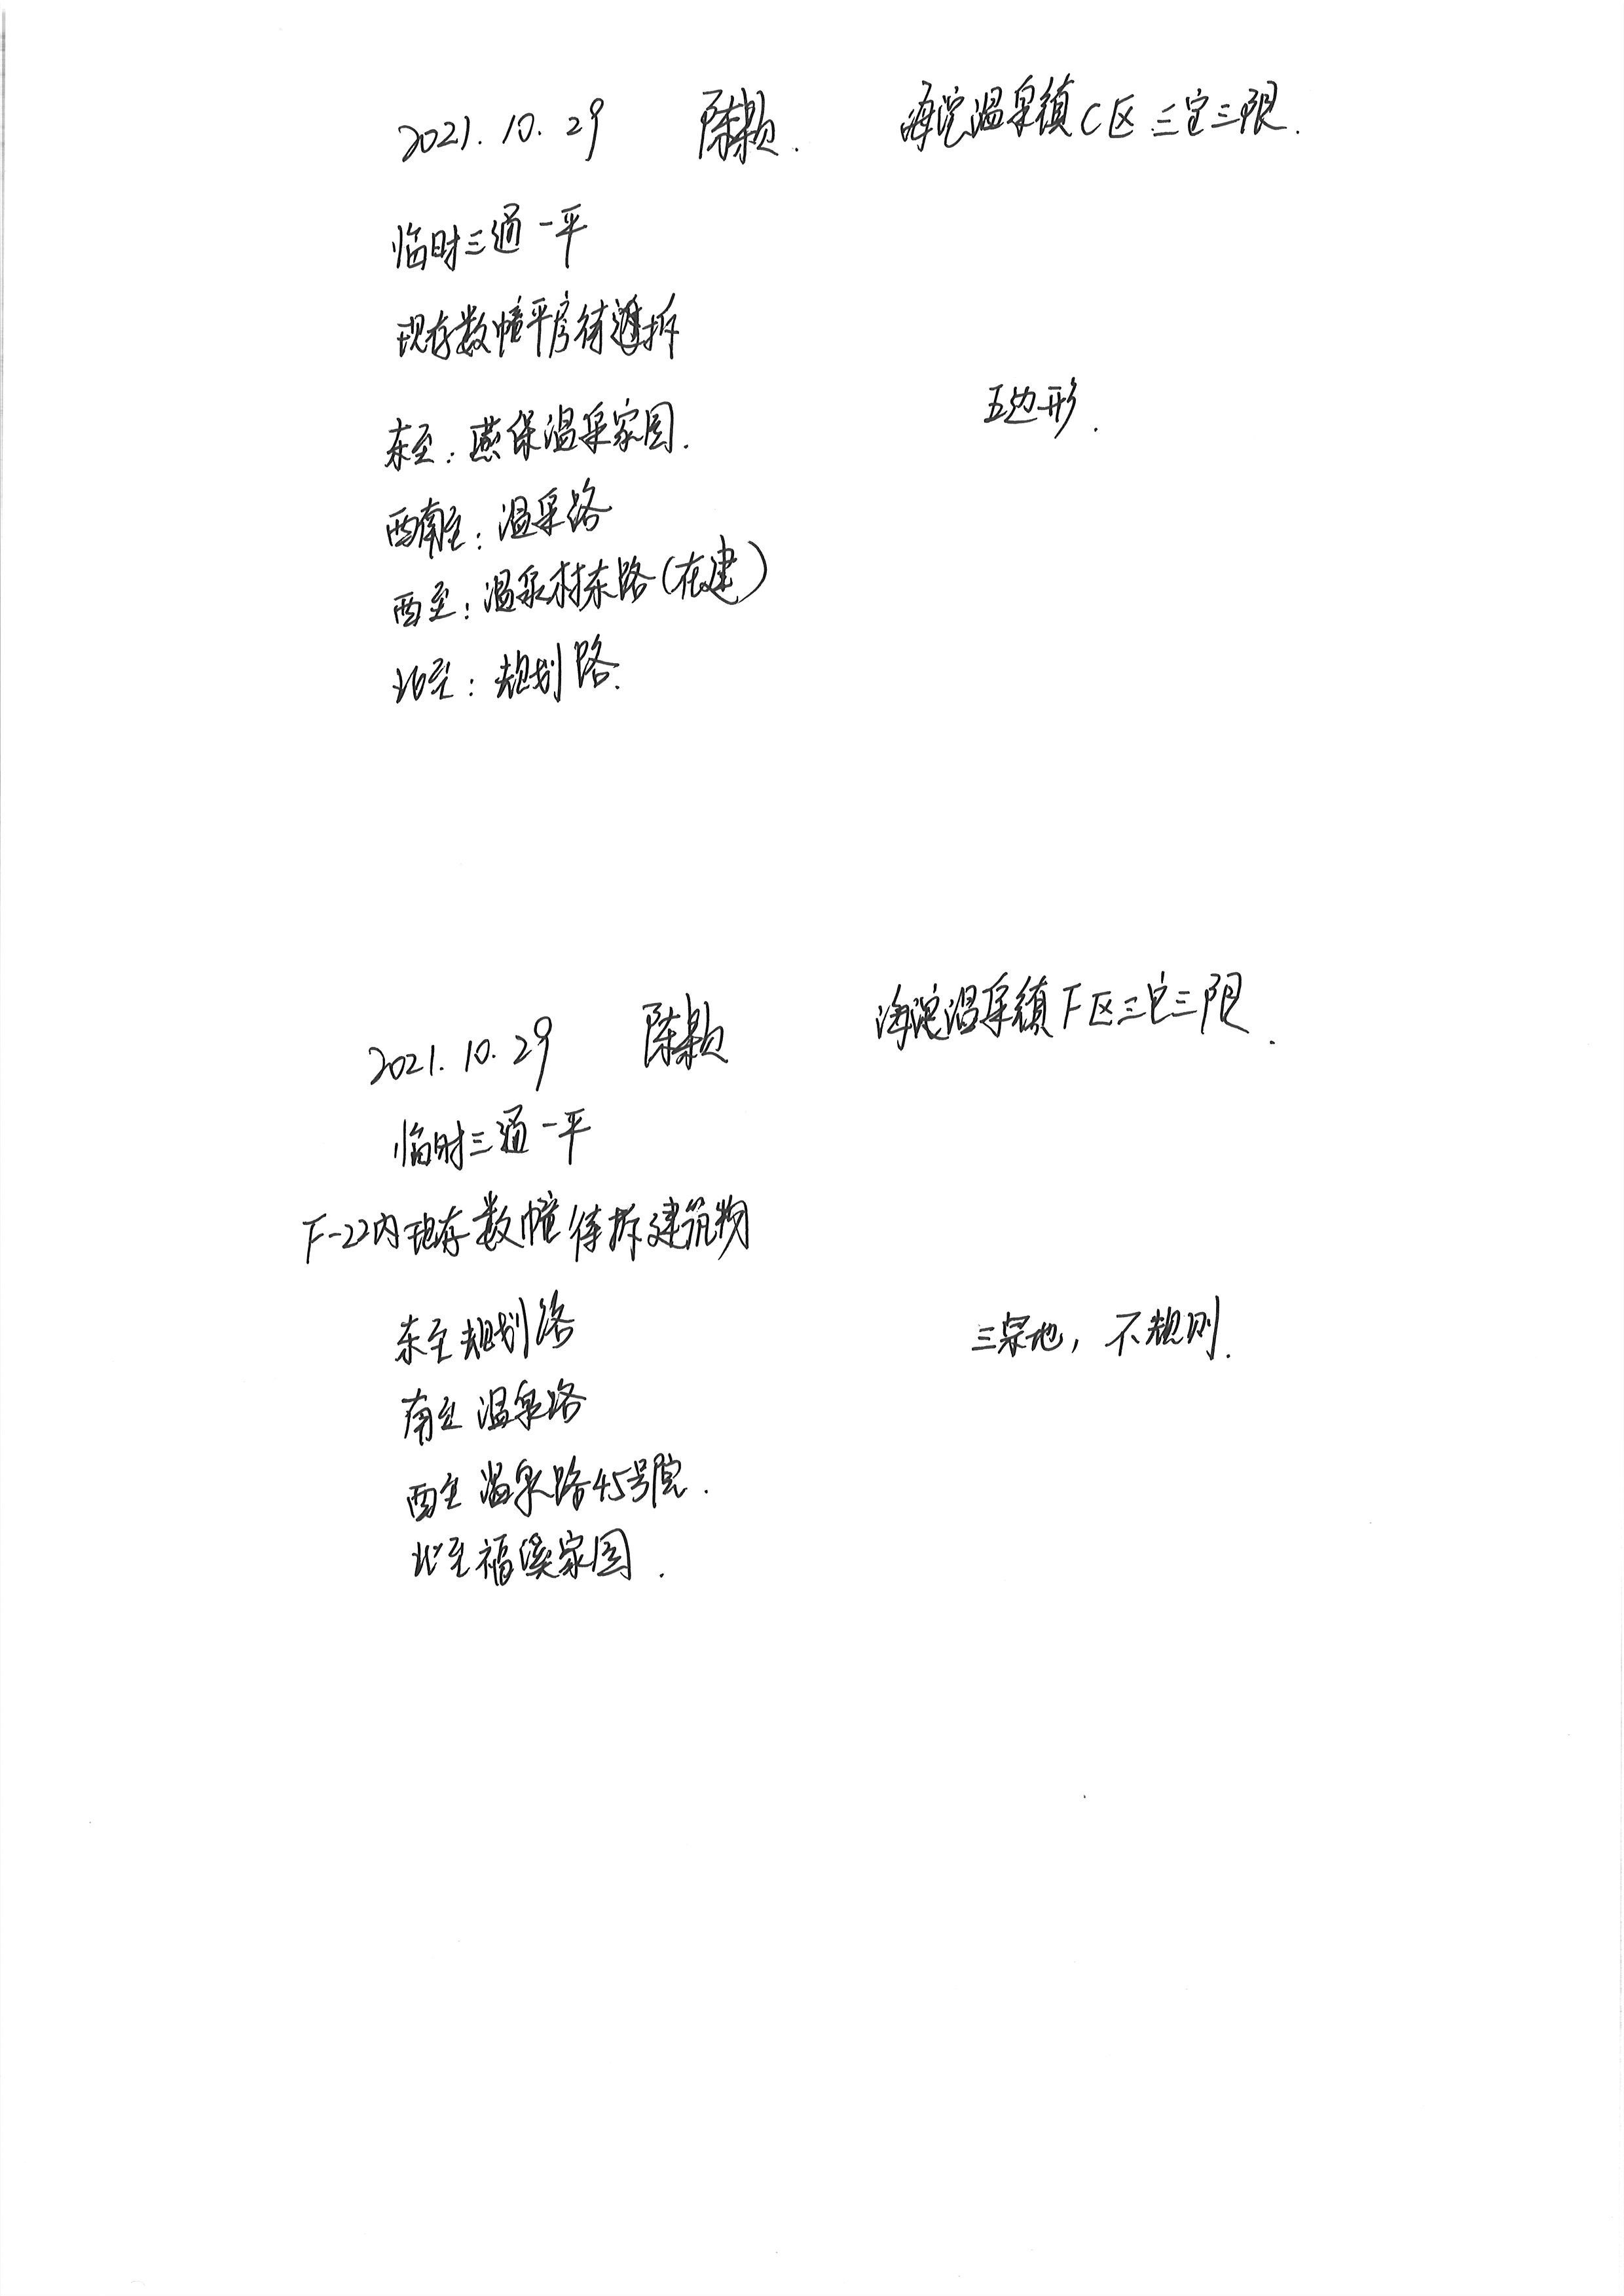 2021.10.29 陈颖. 海淀温泉镇C区三定三限.
临时三通一平
现存数幢平房待拆
五边形.
东至:燕保温泉家园.
西南至:温泉路
西至:温泉村东路(在建)
北至:规划路.
2021.10.29 陈颖 海淀温泉镇F区三定三限.
临时三通一平
F-22内现存数幢待拆建筑物
东至规划路 三宗地,不规则.
南至温泉路
西至温泉路45号院.
北至福溪家园.